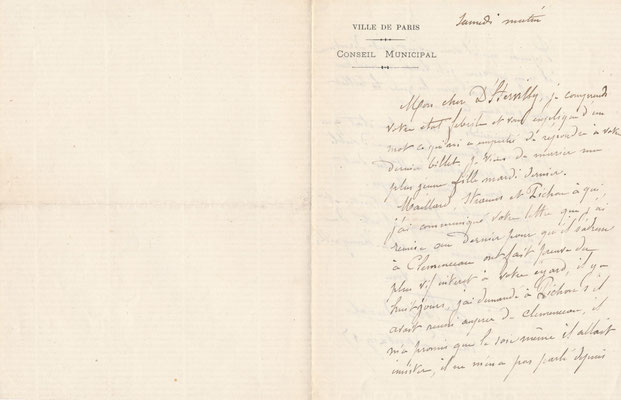 VILLE DE PARIS
CONSEIL MUNICIPAL
Samedi matin
Mon cher D'Hervilly, je comprends
votre état fébrile et vous explique d'un
mot ce qui m'a empêché de répondre à votre
dernier billet. Je viens de marier ma
plus jeune fille mardi dernier.
Maillard, Strauss et Pichon à qui
j'ai communiqué votre lettre que j'ai
remise au dernier pour qu'il s'adresse
à Clemenceau ont fait preuve du
plus vif intérêt à votre égard, il y a
huit jours, j'ai demandé à Pichon s'il
avait réussi auprès de Clemenceau, il
m'a promis que le soir même il allait
insister, il ne m'en a pas parlé depuis